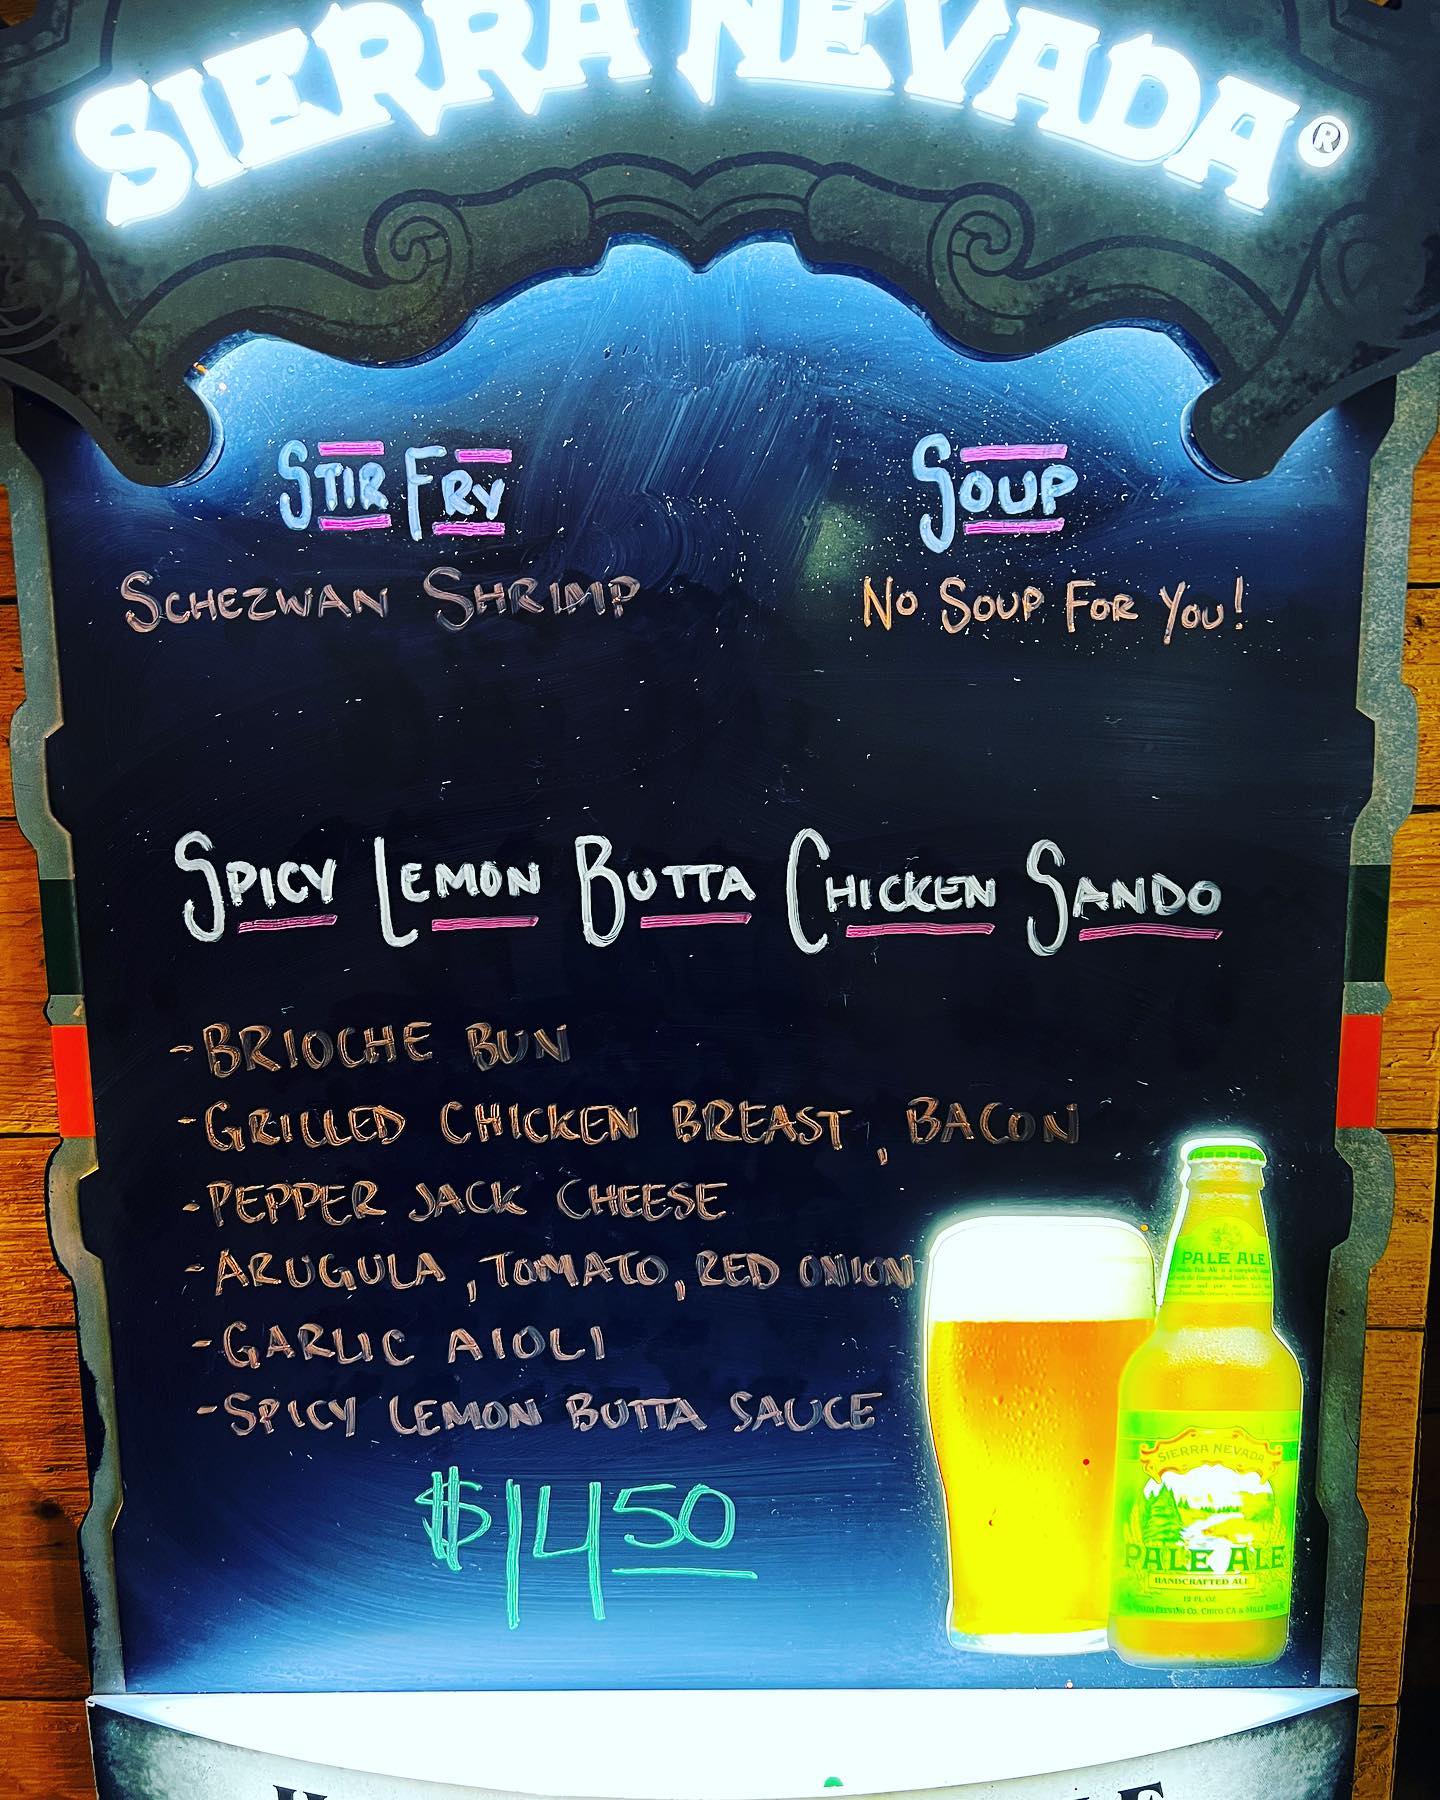 SIERRA NEVADA®
STIR FRY
SCHEZWAN SHRIMP
SOUP
NO SOUP FOR YOU!
SPICY LEMON BUTTA CHICKEN SANDO
-BRIOCHE BUN
-GRILLED CHICKEN BREAST, BACON
-PEPPER JACK CHEESE
-ARUGULA, TOMATO, RED ONION
-GARLIC AIOLI
-SPICY LEMON BUTTA SAUCE
$14 50
PALE ALE
SIERRA NEVADA
PALE ALE
HANDCRAFTED ALE
12 FL. OZ.
BREWING CO. CHICO, CA & MILLS RIVER, NC